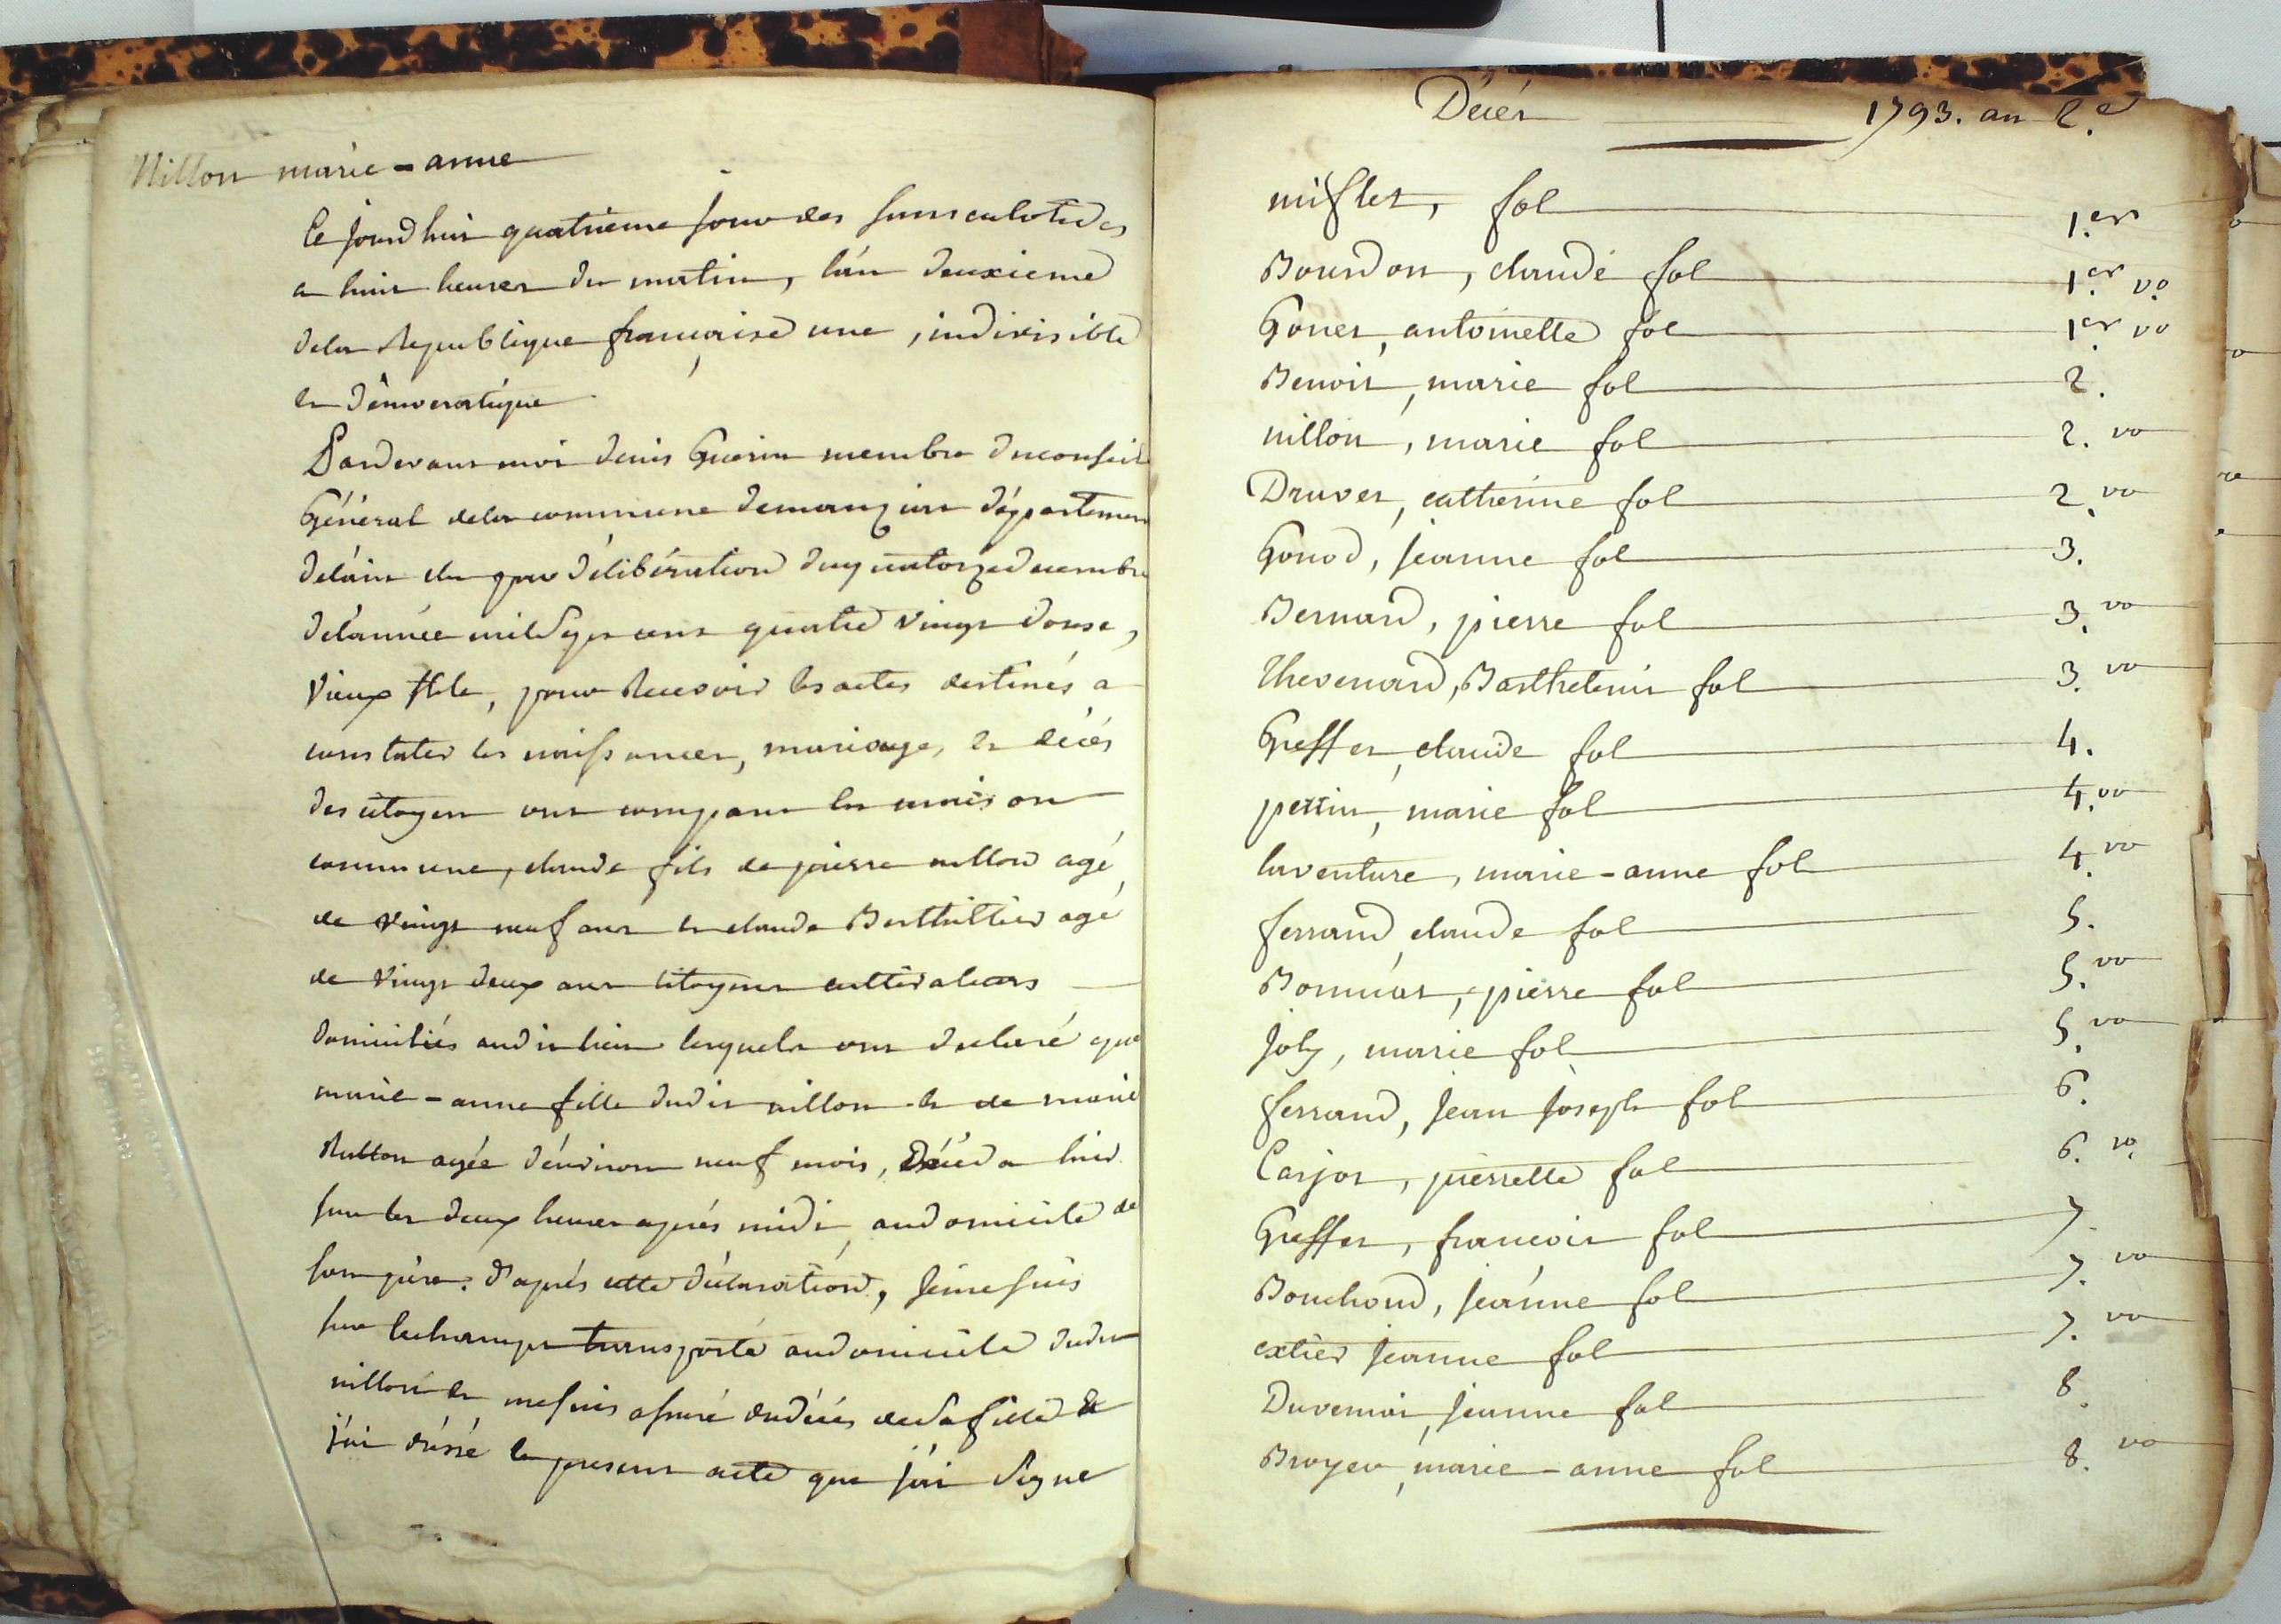 Nillon marie-anne
Ce jourdhui quatrieme jour des sansculotides
a huit heures du matin, l'an deuxieme
dela Republique française une, indivisible
et démocratique
Pardevant moi denis Guerin membre du conseil
Général dela commune de département
delain élu par délibération du quatorze decembre
délannée mil sept cent quatre vingt douse,
vieux stile, pour Recevoir les actes destinés a
constater les naissances, mariage, et décés
des citoyens ont comparu la maison
commune, claude fils de pierre nillon agé
de vingt neuf ans et claude Berthillier agé
de vingt deux ans citoyens cultivateurs
domiciliés audit lieu lesquels ont declaré que
marie-anne fille dudit nillon et de marie
agée d'énviron neuf mois, Décéda hier
sur les deux heures aprés midi audomicile de
son père. d'aprés cette déclaration, je me suis
sur lechamps transporté audomicile dudit
nillon et mesuis assuré dudécés desafille et
j'ai dréssé le present acte que j'ai signé
Décés 1793. an 2.e
miflet, fol 1.er
Bourdon, claude fol 1.er v.o
Gonet, antoinette fol 1.er vo
Benoit, marie fol 2.
nillon, marie fol 2. vo
Druvet, catherine fol 2. vo
Gonod, jeanne fol 3.
Bernard, pierre fol 3. vo
thevenard, Barthelemi fol 3. vo
Greffet, claude fol 4.
perrin, marie fol 4. vo
laventure, marie-anne fol 4. vo
ferrand claude fol 5.
Bonniat, pierre fol 5. vo
joly, marie fol 5. vo
ferrand, jean joseph fol 6.
Carjot, pierrette fol 6. vo
Greffet, francois fol 7.
Bouchond, jeanne fol 7. vo
extier jeanne fol 7. vo
jeanne fol 8.
Broyer, marie-anne fol 8. vo